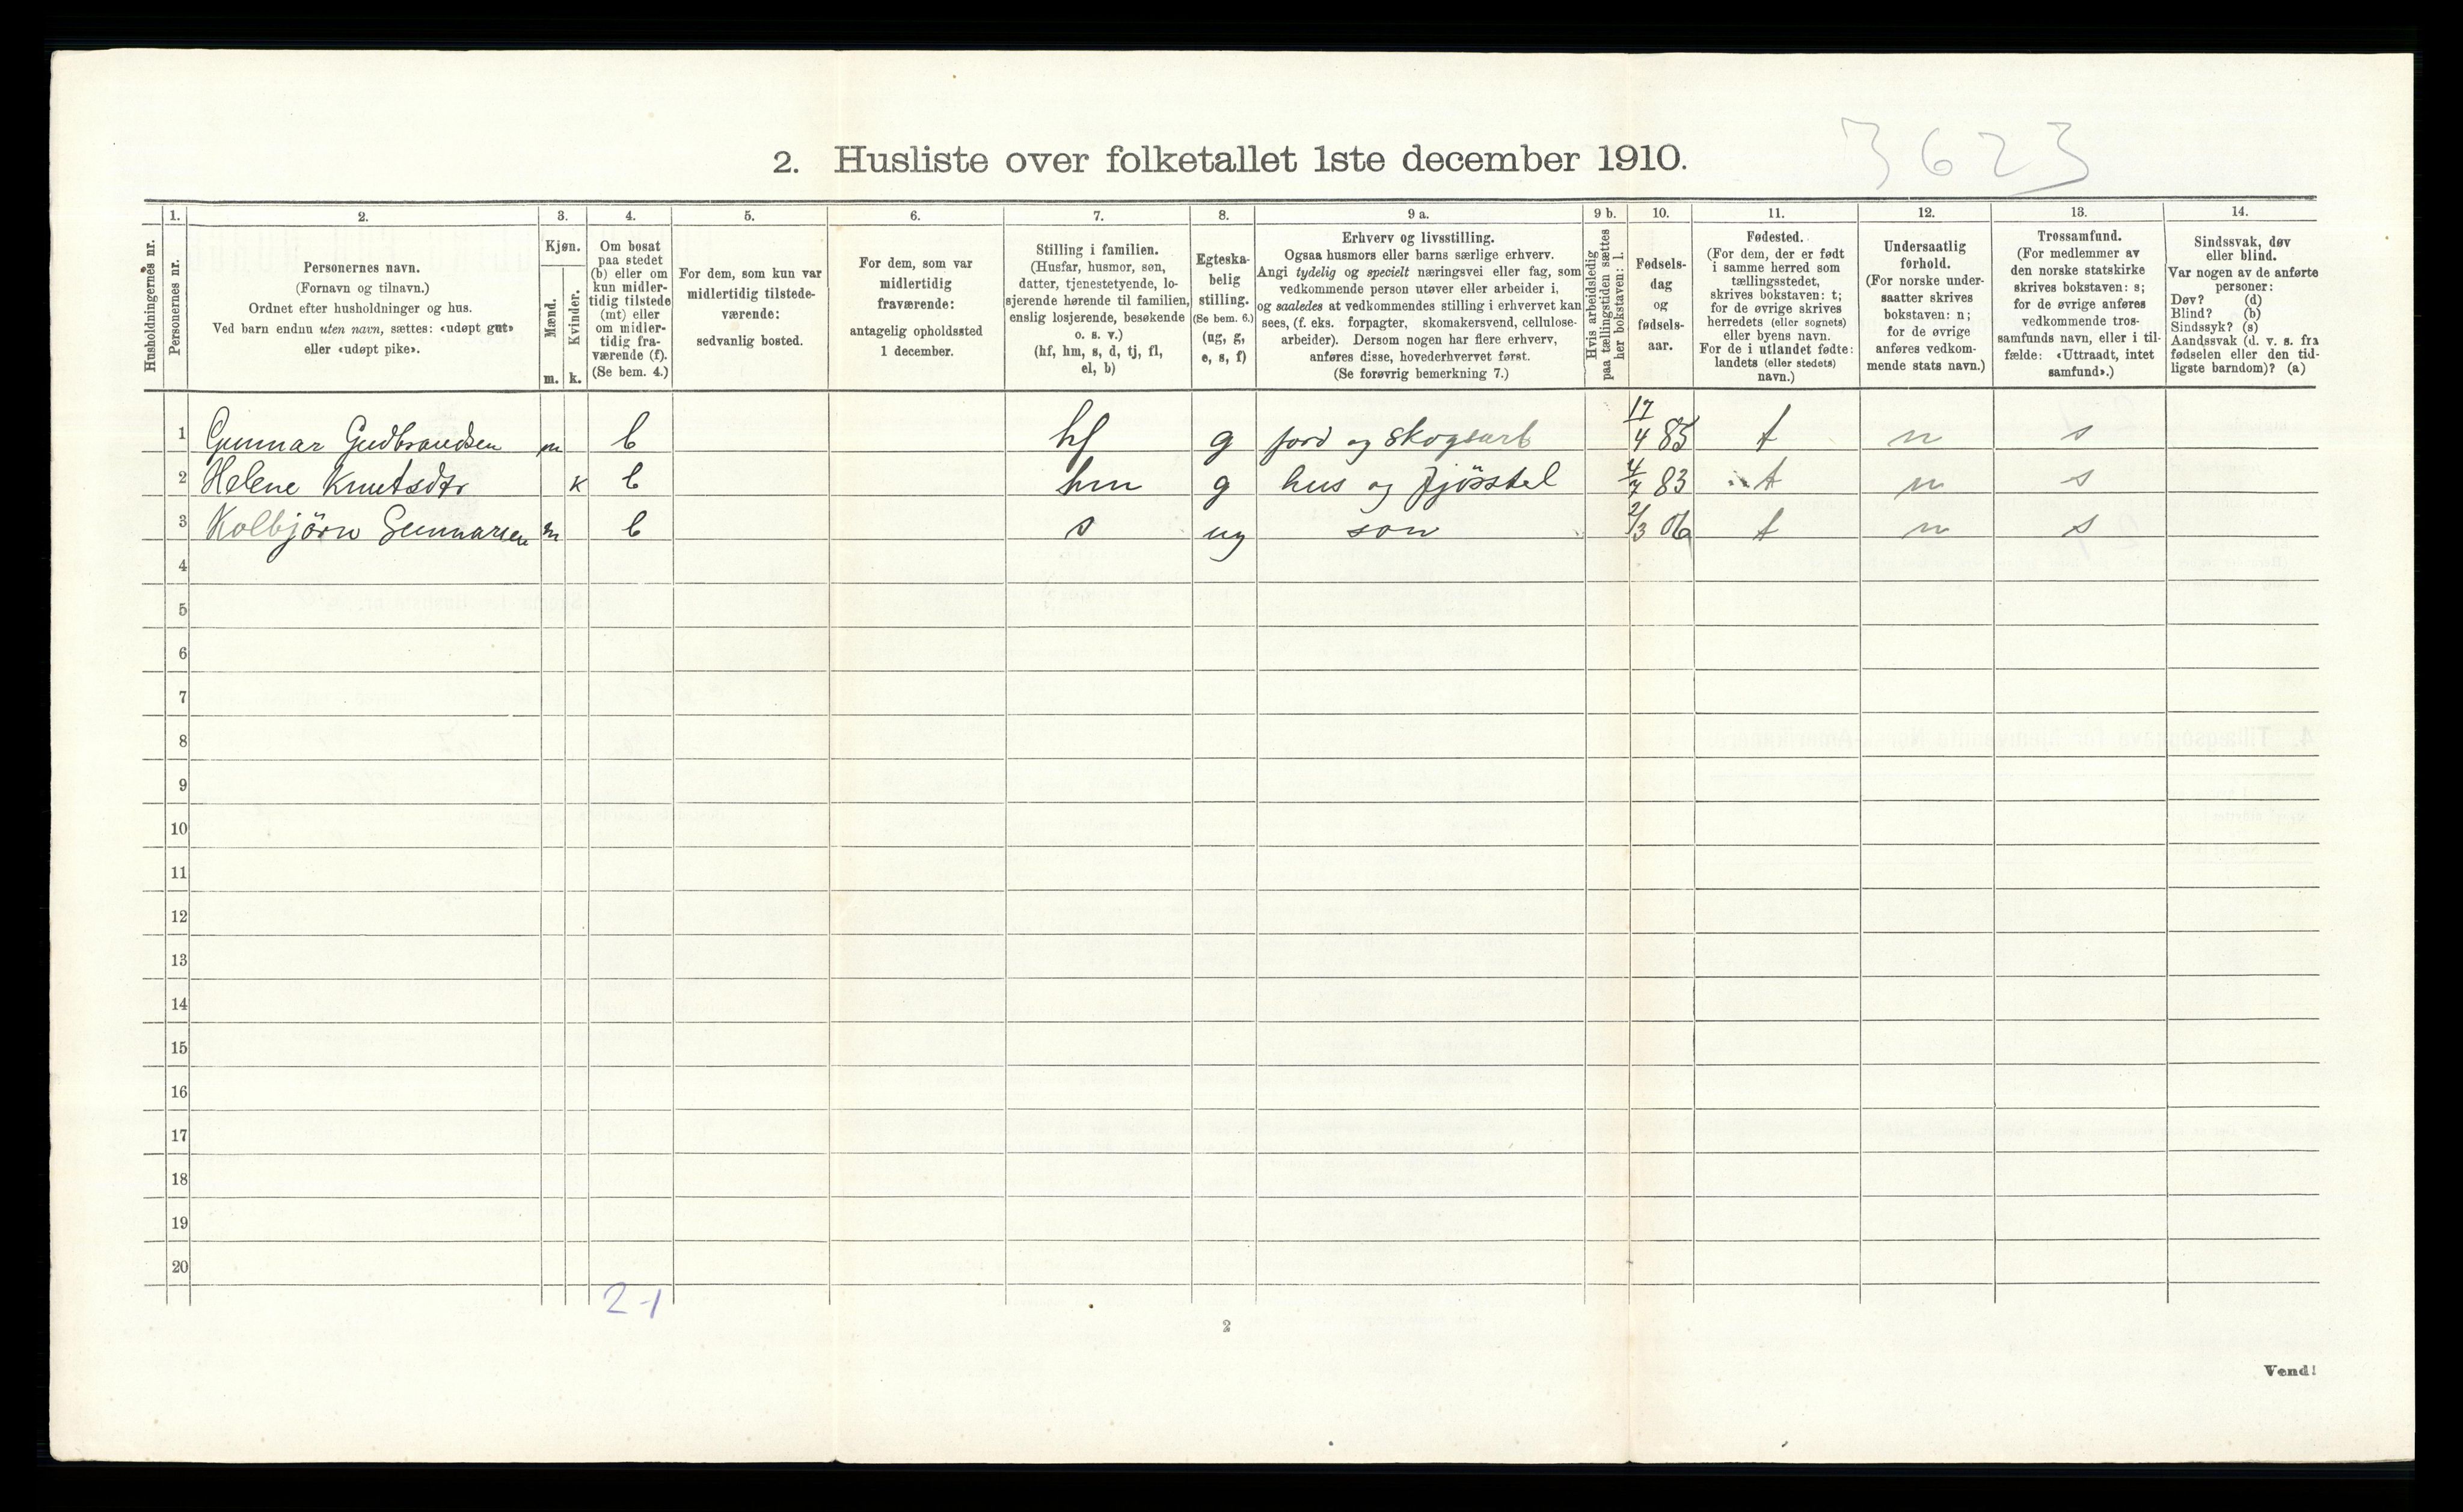 3623
2. Husliste over folketallet 1ste december 1910.
Husholdningernes nr.
1.
Personernes nr.
2.
Personernes navn.
(Fornavn og tilnavn.)
Ordnet efter husholdninger og hus.
Ved barn endnu uten navn, sættes: «udøpt gut»
eller «udøpt pike».
3.
Kjøn.
Mænd.
m.
Kvinder.
k.
4.
Om bosat
paa stedet
(b) eller om
kun midler-
tidig tilstede
(mt) eller
om midler-
tidig fra-
værende (f).
(Se bem. 4.)
5.
For dem, som kun var
midlertidig tilstede-
værende:
sedvanlig bosted.
6.
For dem, som var
midlertidig
fraværende:
antagelig opholdssted
1 december.
7.
Stilling i familien.
(Husfar, husmor, søn,
datter, tjenestetyende, lo-
sjerende hørende til familien,
enslig losjerende, besøkende
o. s. v.)
(hf, hm, s, d, tj, fl,
el, b)
8.
Egteska-
belig
stilling.
(Se bem. 6.)
(ug, g,
e, s, f)
9 a.
Erhverv og livsstilling.
Ogsaa husmors eller barns særlige erhverv.
Angi tydelig og specielt næringsvei eller fag, som
vedkommende person utøver eller arbeider i,
og saaledes at vedkommendes stilling i erhvervet kan
sees, (f. eks. forpagter, skomakersvend, cellulose-
arbeider). Dersom nogen har flere erhverv,
anføres disse, hovederhvervet først.
(Se forøvrig bemerkning 7.)
9 b.
Hvis arbeidsledig
paa tællingstiden sættes
her bokstaven: l.
10.
Fødsels-
dag
og
fødsels-
aar.
11.
Fødested.
(For dem, der er født
i samme herred som
tællingsstedet,
skrives bokstaven: t;
for de øvrige skrives
herredets (eller sognets)
eller byens navn.
For de i utlandet fødte:
landets (eller stedets)
navn.)
12.
Undersaatlig
forhold.
(For norske under-
saatter skrives
bokstaven: n;
for de øvrige
anføres vedkom-
mende stats navn.)
13.
Trossamfund.
(For medlemmer av
den norske statskirke
skrives bokstaven: s;
for de øvrige anføres
vedkommende tros-
samfunds navn, eller i til-
fælde: «Uttraadt, intet
samfund».)
14.
Sindssvak, døv
eller blind.
Var nogen av de anførte
personer:
Døv? (d)
Blind? (b)
Sindssyk? (s)
Aandssvak (d. v. s. fra
fødselen eller den tid-
ligste barndom)? (a)
1 Gunnar Gudbrandsen m b hf g jord og skogsarb 17/4 85 t n s
2 Helene Knutsdtr k b hm g hus og fjösstel 4/7 83 t n s
3 Kolbjörn Gunnarsen m b s ug son 2/3 06 t n s
4
5
6
7
8
9
10
11
12
13
14
15
16
17
18
19
20
2-1
2
Vend!